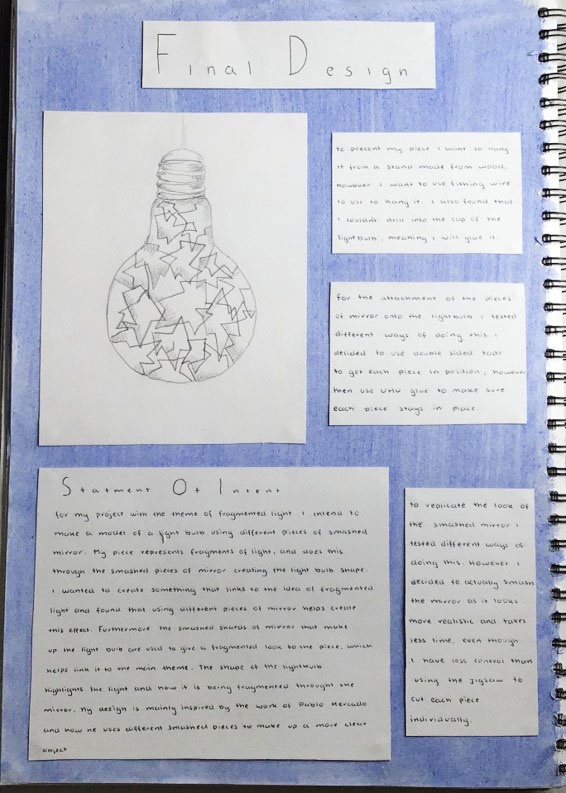 Final Design
to present my piece I want to hang
it from a stand made from wood,
however I want to use fishing wire
to use to hang it. I also found that
I couldn't drill into the cap of the
lightbulb, meaning I will glue it.
for the attachment of the pieces
of mirror onto the lightbulb I tested
different ways of doing this. I
decided to use double sided tape
to get each piece in position, however
then use UHU glue to make sure
each piece stays in place.
Statment Of Intent
for my project with the theme of fragmented light I intend to
make a model of a light bulb using different pieces of smashed
mirror. My piece represents fragments of light, and does this
through the smashed pieces of mirror creating the light bulb shape.
I wanted to create something that links to the idea of fragmented
light and found that using different pieces of mirror helps create
this effect. Furthermore the smashed shards of mirror that make
up the light bulb are used to give a fragmented look to the piece, which
helps link it to the main theme. The shape of the lightbulb
highlights the light and how it is being fragmented throught the
mirror. My design is mainly inspired by the work of Pablo Mercado
and how he uses different smashed pieces to make up a more clear
object
to replicate the look of
the smashed mirror I
tested different ways of
doing this. However I
decided to actually smash
the mirror as it looks
more realistic and takes
less time, even though
I have less control than
using the jigsaw to
cut each piece
individually.